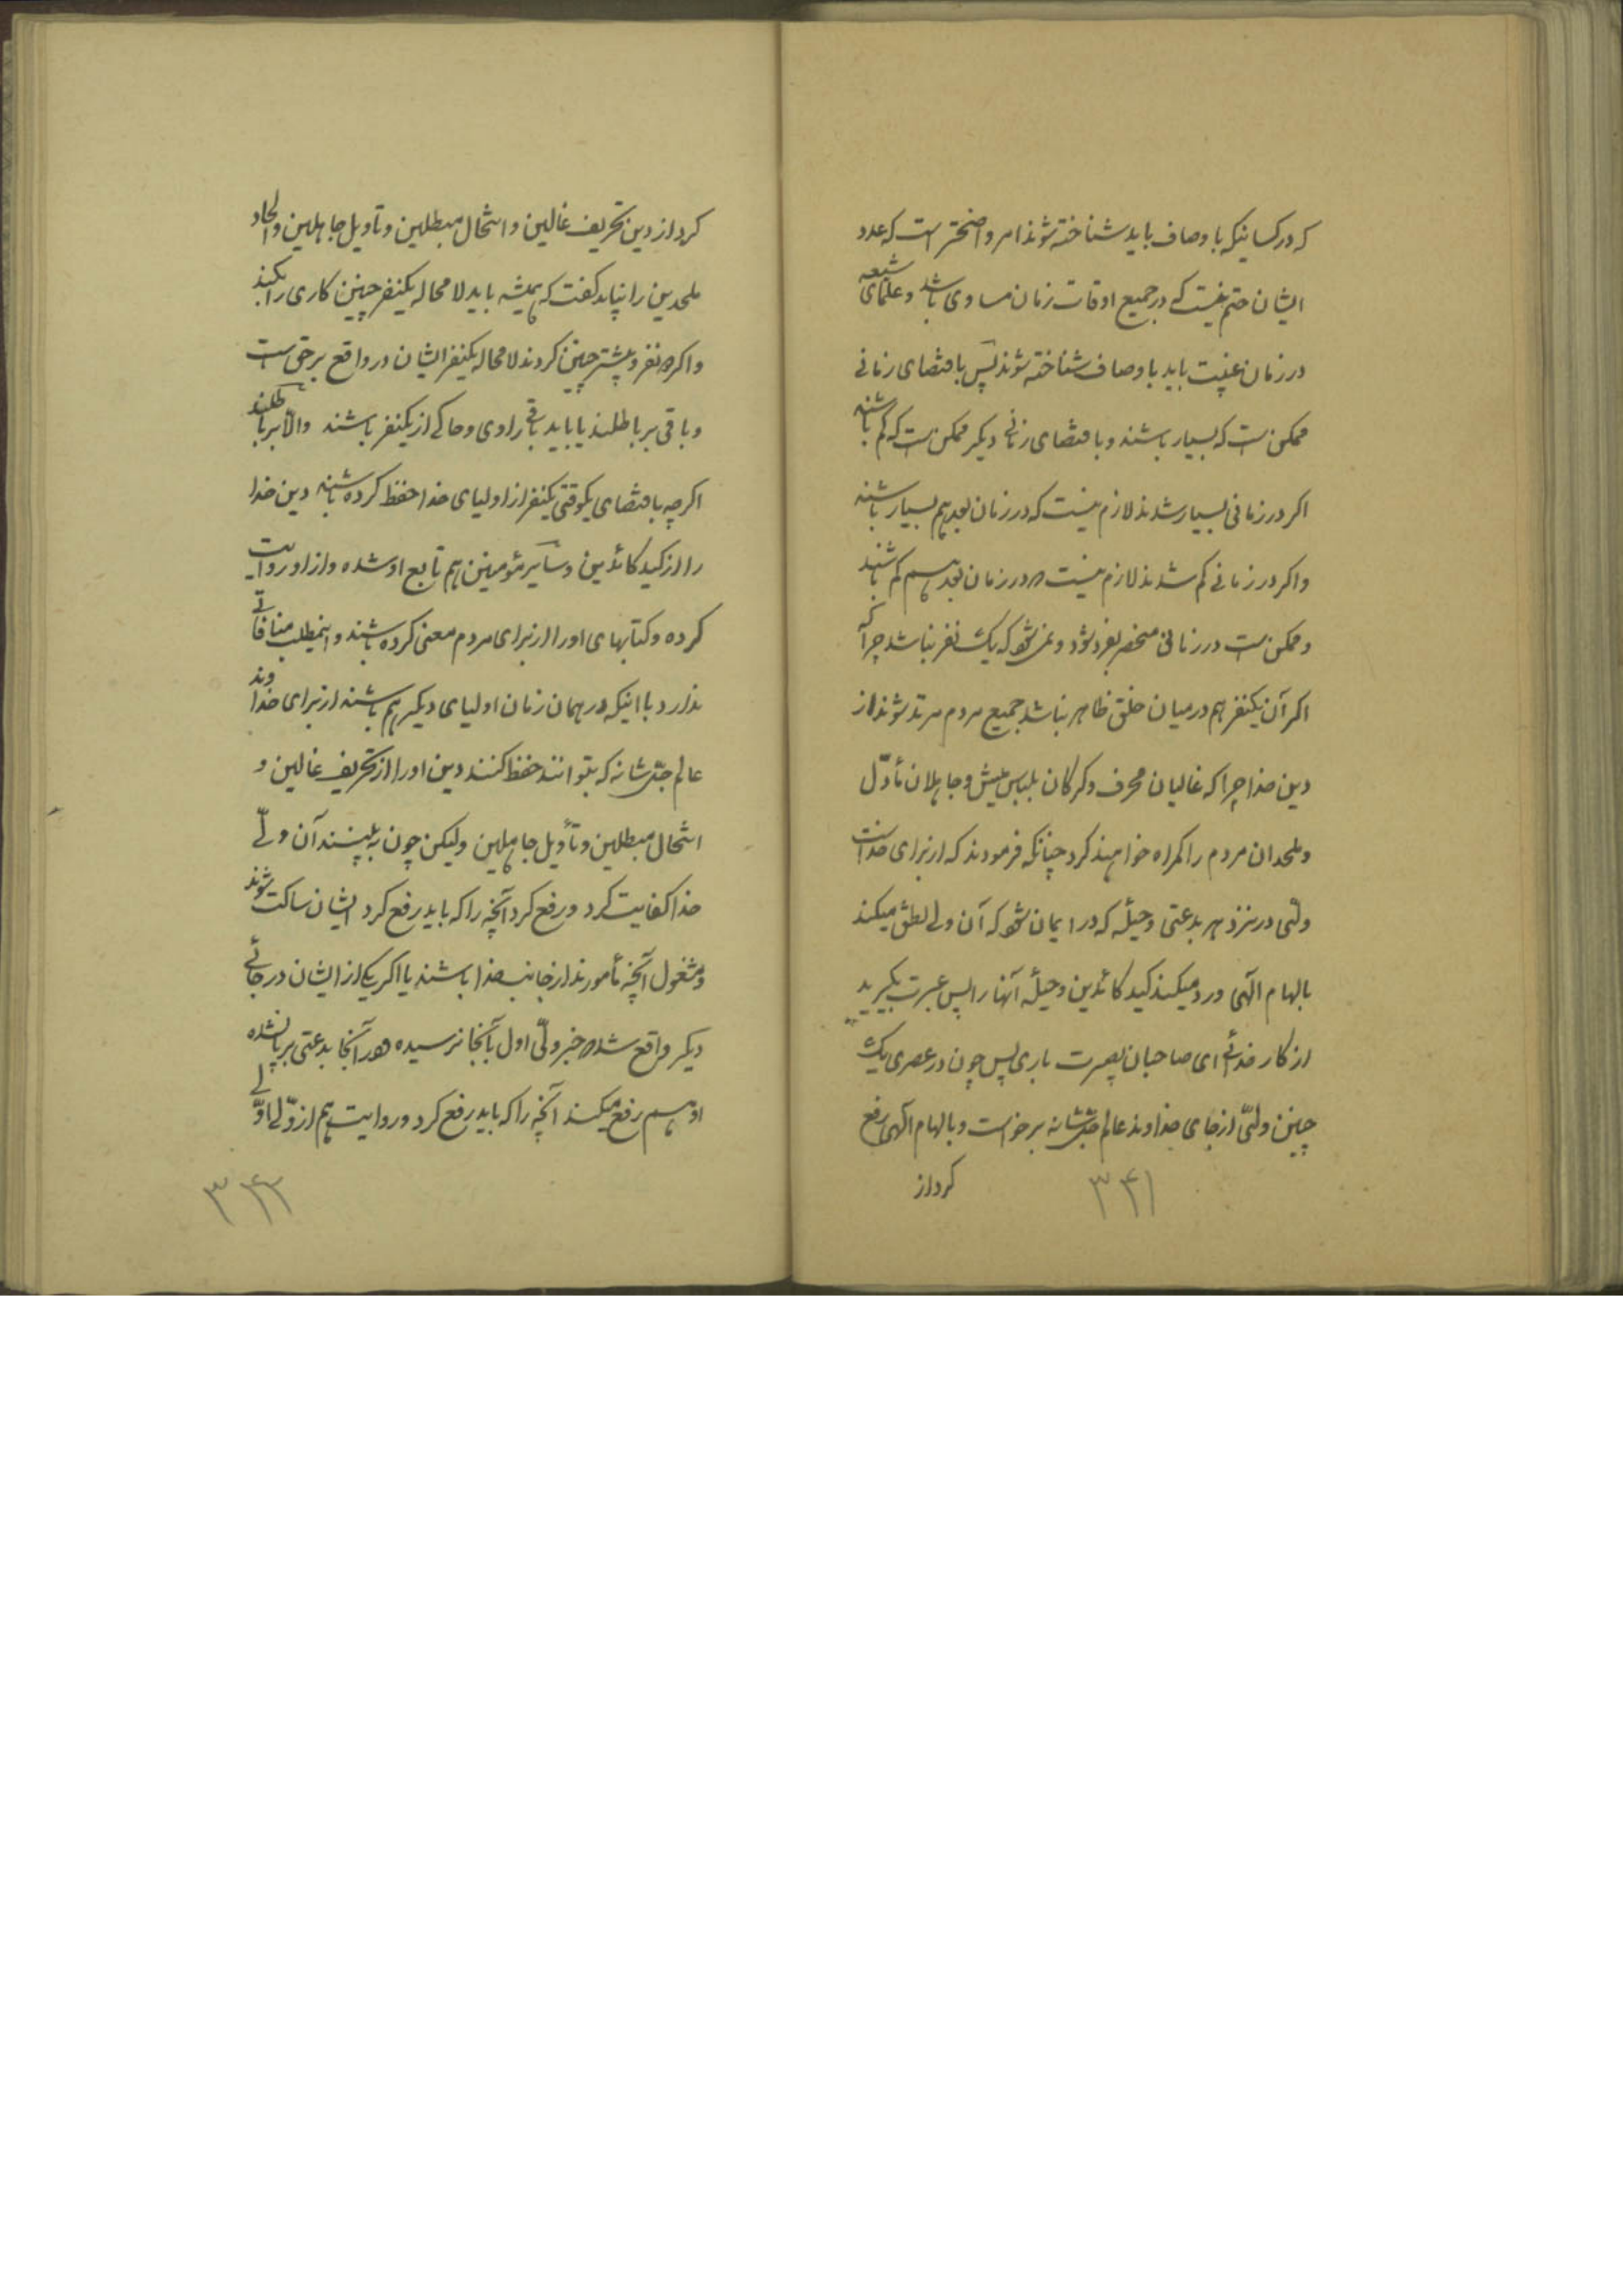 که در کسانیکه باوصاف باید شناخته شوند امر واضحتر است که عدد
ایشان حتم نیست که در جمیع اوقات زمان مساوی باشد و علمای شیعه
در زمان غیبت باید باوصاف شناخته شوند پس باقتضای زمانی
ممکن است که بسیار باشند و باقتضای زمانی دیگر ممکن است که کم باشند
اگر در زمانی بسیار شدند لازم نیست که در زمان بعد هم بسیار باشند
و اگر در زمانی کم شدند لازم نیست که در زمان بعد هم کم باشند
و ممکن است در زمانی منحصر بفرد شود و نمی‌شود که یک نفر نباشد چرا که
اگر آن یکنفر هم در میان خلق ظاهر نباشد جمیع مردم مرتد شوند از
دین خدا چرا که غالیان محرف و گرگان بلباس میش و جاهلان مأوّل
و ملحدان مردم را گمراه خواهند کرد چنانکه فرمودند که از برای خداست
ولّی در نزد هر بدعتی و حیله که در ایمان شود که آن ولی نطق میکند
بالهام الهی و رد میکند کید کائدین و حیله آنها را پس عبرت بگیرید
از کار خدائی ای صاحبان بصیرت باری پس چون در عصری یک
چنین ولیّ از جای خداوند عالم جلّ شانه برخواست و بالهام الهی رفع
کرد از
۳۴۱
کرد از دین تحریف غالین و انتحال مبطلین و تأویل جاهلین و الحاد
ملحدین را نباید گفت که همیشه باید لامحاله یکنفر چنین کاری را بکند
و اگر دو نفر و بیشتر چنین کردند لامحاله یکنفر ایشان در واقع بر حق است
و باقی بر باطلند یا باید باقی راوی و حاکی از یکنفر باشند والّا بر باطلند
اگرچه باقتضای یکوقتی یکنفر از اولیای خدا حفظ کرده باشند دین خدا
را از کید کائدین و سایر مؤمنین هم تابع او شده و از او روایت
کرده و کتابهای او را از برای مردم معنی کرده باشند و اینمطلب منافاتی
ندارد با اینکه در همان زمان اولیای دیگر هم باشند از برای خداوند
عالم جلّ شانه که بتوانند حفظ کنند دین او را از تحریف غالین و
انتحال مبطلین و تأویل جاهلین ولیکن چون به‌بینند آن ولّی
خدا کفایت کرد و رفع کرد آنچه را که باید رفع کرد ایشان ساکت شوند
و مشغول آنچه مأمورند از جانب خدا باشند یا اگر یکی از ایشان در جائی
دیگر واقع شد که خبر ولّی اول بآنجا نرسیده و در آنجا بدعتی بر پا شده
او هم رفع میکند آنچه را که باید رفع کرد و روایت هم از ولّی اوّلی
۳۴۲